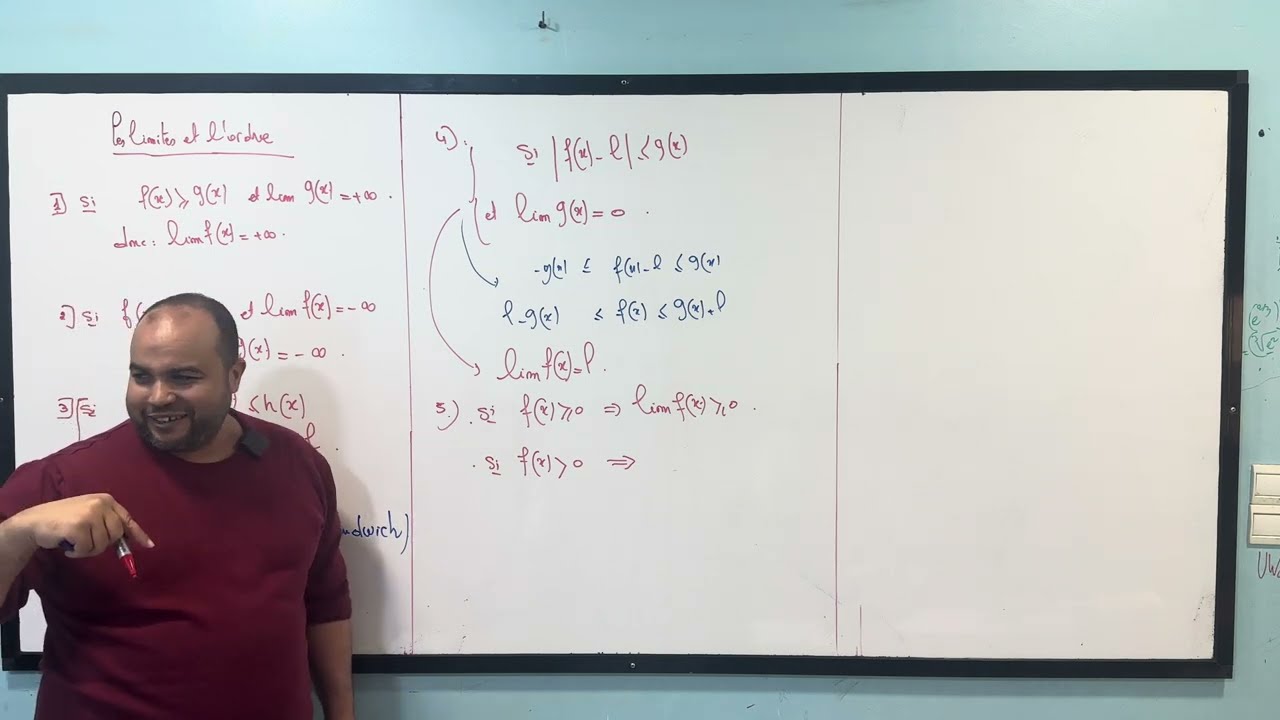 Les limites et l'ordre
1] Si f(x) ≥ g(x) et lim g(x) = +∞ .
donc : lim f(x) = +∞ .
2] Si f( et lim f(x) = -∞
g(x) = -∞ .
3] Si ≤ h(x)
l .
ndwich)
4) . Si |f(x) - l| ≤ g(x)
et lim g(x) = 0 .
-g(x) ≤ f(x) - l ≤ g(x)
l - g(x) ≤ f(x) ≤ g(x) + l
lim f(x) = l .
5.) . Si f(x) ≥ 0 ⇒ lim f(x) ≥ 0 .
. Si f(x) > 0 ⇒